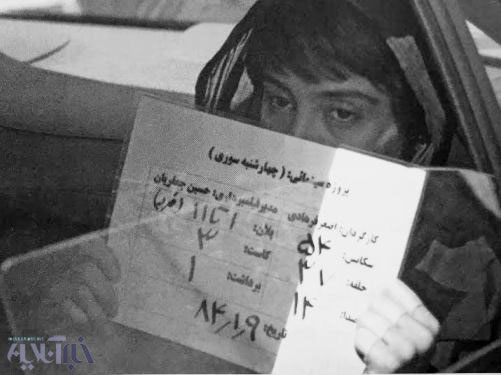 پروژه سینمائی: (چهارشنبه سوری)
کارگردان: اصغر فرهادی مدیر فیلمبرداری: حسین جعفریان
سکانس: ۵۴ پلان: ۱ تا ۱۱
حلقه: ۳۱ کاست: ۳
صدا: ۱۳ برداشت: ۱
تاریخ: ۸۴٫۱٫۹
خبرآنلاین